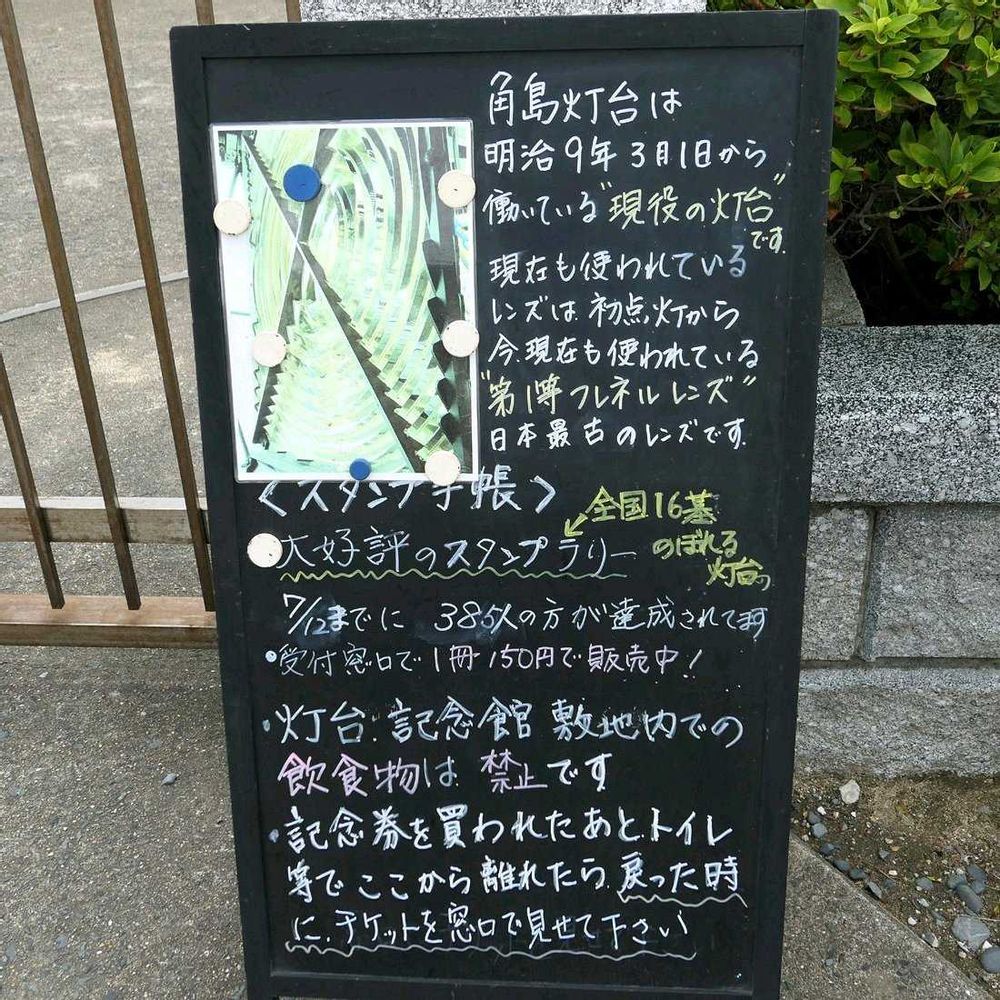 角島灯台は
明治9年3月1日から
働いている"現役の灯台"
です。
現在も使われている
レンズは初点灯から
今.現在も使われている
"第1等フレネルレンズ"
日本最古のレンズです。
<スタンプ手帳>
全国16基
のぼれる
灯台。
大好評のスタンプラリー
7/12までに 385人の方が達成されてます
•受付窓口で1冊150円で販売中!
•灯台.記念館敷地内での
飲食物は禁止です
•記念券を買われたあと.トイレ
等でここから離れたら.戻った時
に.チケットを窓口で見せて下さい